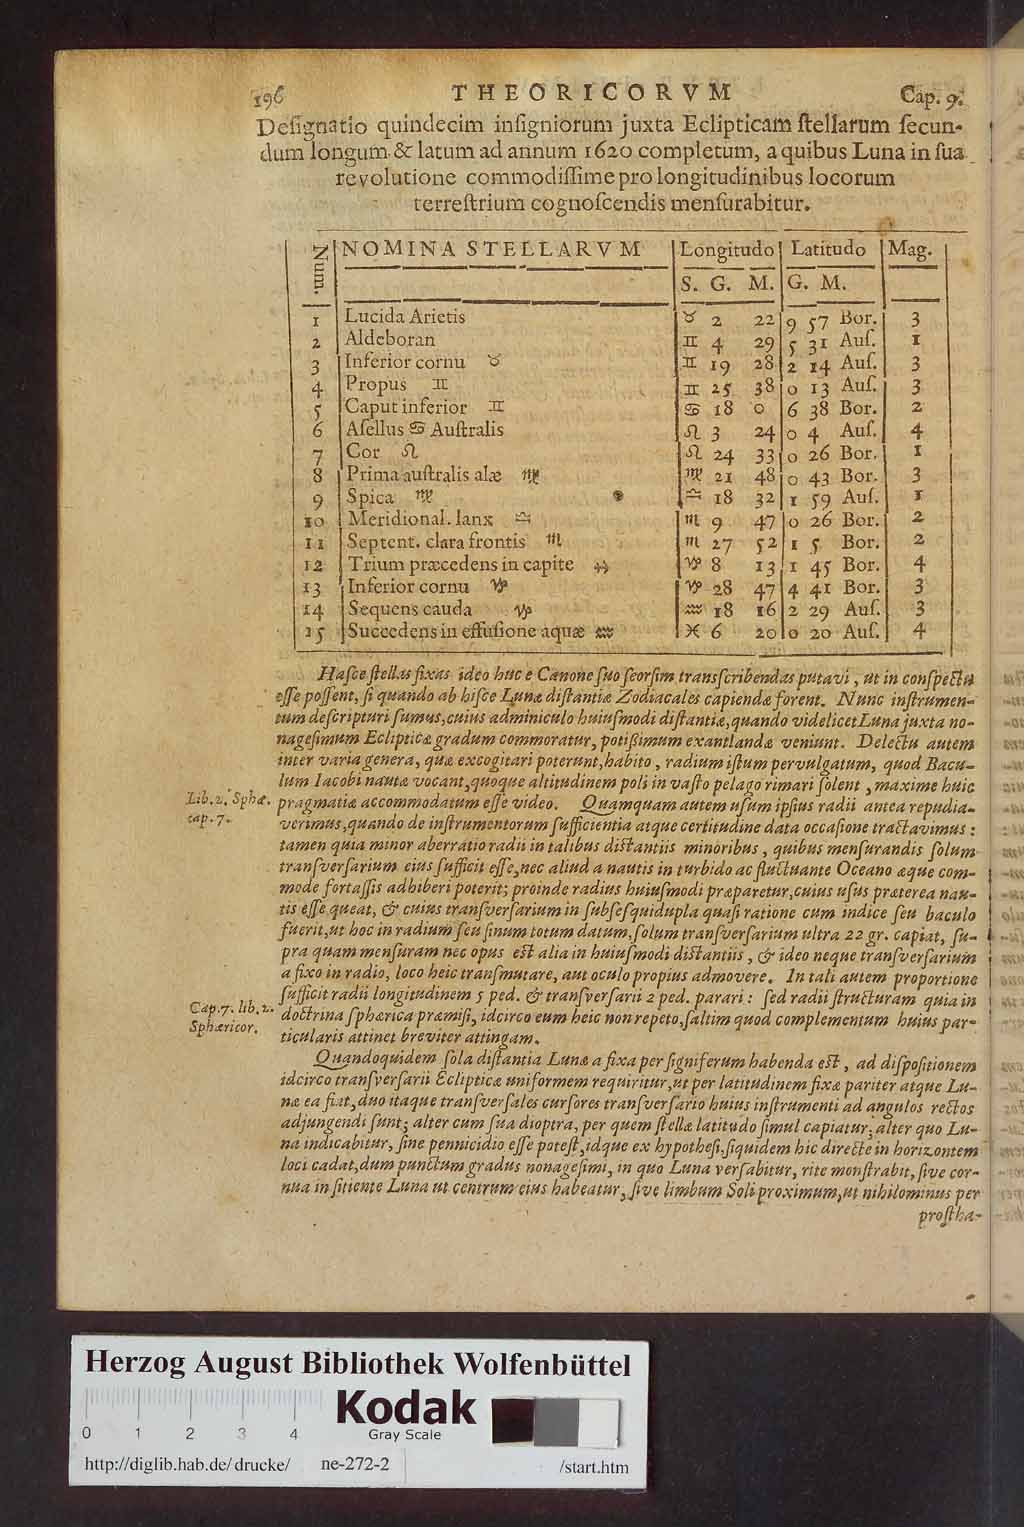 196 THEORICORVM Cap. 9.
Deſignatio quindecim inſigniorum juxta Eclipticam ſtellarum ſecun-
dum longum & latum ad annum 1620 completum, a quibus Luna in ſua
revolutione commodiſſime pro longitudinibus locorum
terreſtrium cognoſcendis menſurabitur.
Num. NOMINA STELLARVM Longitudo Latitudo Mag.
S. G. M. G. M.
1 Lucida Arietis ♉ 2 22 9 57 Bor. 3
2 Aldeboran ♊ 4 29 5 31 Auſ. 1
3 Inferior cornu ♉ ♊ 19 28 2 14 Auſ. 3
4 Propus ♊ ♊ 25 38 0 13 Auſ. 3
5 Caput inferior ♊ ♋ 18 0 6 38 Bor. 2
6 Aſellus ♋ Auſtralis ♌ 3 24 0 4 Auſ. 4
7 Cor ♌ ♌ 24 33 0 26 Bor. 1
8 Prima auſtralis alæ ♍ ♍ 21 48 0 43 Bor. 3
9 Spica ♍ ♎ 18 32 1 59 Auſ. 1
10 Meridional. lanx ♎ ♏ 9 47 0 26 Bor. 2
11 Septent. clara frontis ♏ ♏ 27 52 1 5 Bor. 2
12 Trium præcedens in capite ♐ ♑ 8 13 1 45 Bor. 4
13 Inferior cornu ♑ ♑ 28 47 4 41 Bor. 3
14 Sequens cauda ♑ ♒ 18 16 2 29 Auſ. 3
15 Succedens in effuſione aquæ ♒ ♓ 6 20 0 20 Auſ. 4
Haſce ſtellas fixas ideo huc e Canone ſuo ſeorſim transſcribendas putavi, ut in conſpectu
eſſe poſſent, ſi quando ab hiſce Lunæ diſtantiæ Zodiacales capiendæ forent. Nunc inſtrumen-
tum deſcripturi ſumus, cuius adminiculo huiuſmodi diſtantiæ, quando videlicet Luna juxta no-
nageſimum Eclipticæ gradum commoratur, potißimum exantlandæ veniunt. Delectu autem
inter varia genera, quæ excogitari poterunt, habito, radium iſtum pervulgatum, quod Bacu-
lum Iacobi nautæ vocant, quoque altitudinem poli in vaſto pelago rimari ſolent, maxime huic
Lib. 2. Sphæ. cap. 7.
pragmatiæ accommodatum eſſe video. Quamquam autem uſum ipſius radii antea repudia-
verimus, quando de inſtrumentorum ſufficientia atque certitudine data occaſione tractavimus:
tamen quia minor aberratio radii in talibus diſtantiis minoribus, quibus menſurandis ſolum
tranſverſarium eius ſufficit eſſe, nec aliud a nautis in turbido ac fluctuante Oceano æque com-
mode fortaſſis adhiberi poterit; proinde radius huiuſmodi præparetur, cuius uſus præterea nau-
tis eſſe queat, & cuius tranſverſarium in ſubſeſquidupla quaſi ratione cum indice ſeu baculo
fuerit, ut hoc in radium ſeu ſinum totum datum, ſolum tranſverſarium ultra 22 gr. capiat, ſu-
pra quam menſuram nec opus eſt alia in huiuſmodi diſtantiis, & ideo neque tranſverſarium
a fixo in radio, loco heic tranſmutare, aut oculo propius admovere. In tali autem proportione
ſufficit radii longitudinem 5 ped. & tranſverſarii 2 ped. parari: ſed radii ſtructuram quia in
Cap. 7. lib. 2. Sphæricor.
doctrina ſphærica præmiſi, idcirco eum heic non repeto, ſaltim quod complementum huius par-
ticularis attinet breviter attingam.
Quandoquidem ſola diſtantia Lunæ a fixa per ſigniferum habenda eſt, ad diſpoſitionem
idcirco tranſverſarii Eclipticæ uniformem requiritur, ut per latitudinem fixæ pariter atque Lu-
næ ea fiat, duo itaque tranſverſales curſores tranſverſario huius inſtrumenti ad angulos rectos
adjungendi ſunt; alter cum ſua dioptra, per quem ſtellæ latitudo ſimul capiatur; alter quo Lu-
na indicabitur, ſine pennicidio eſſe poteſt, idque ex hypotheſi, ſiquidem hic directe in horizontem
loci cadat, dum punctum gradus nonageſimi, in quo Luna verſabitur, rite monſtrabit, ſive cor-
nua in ſitiente Luna ut centrum eius habeatur, ſive limbum Soli proximum, ut nihilominus per
proſtha-
Herzog August Bibliothek Wolfenbüttel
Kodak
Gray Scale
0 1 2 3 4
http://diglib.hab.de/drucke/ ne-272-2 /start.htm